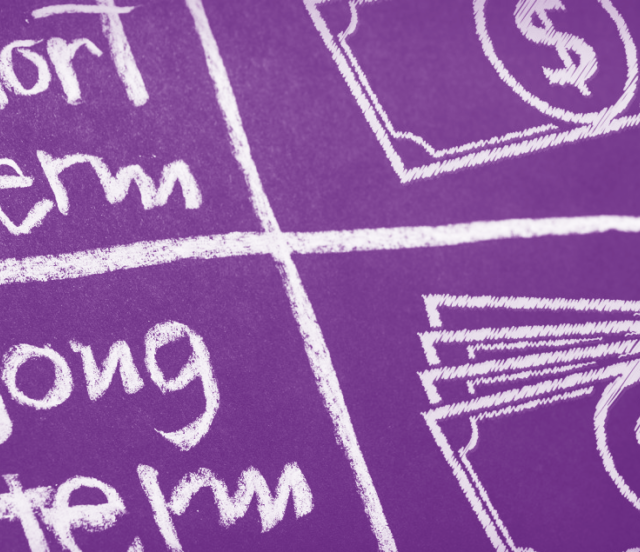 ort
$
erm
ong
term